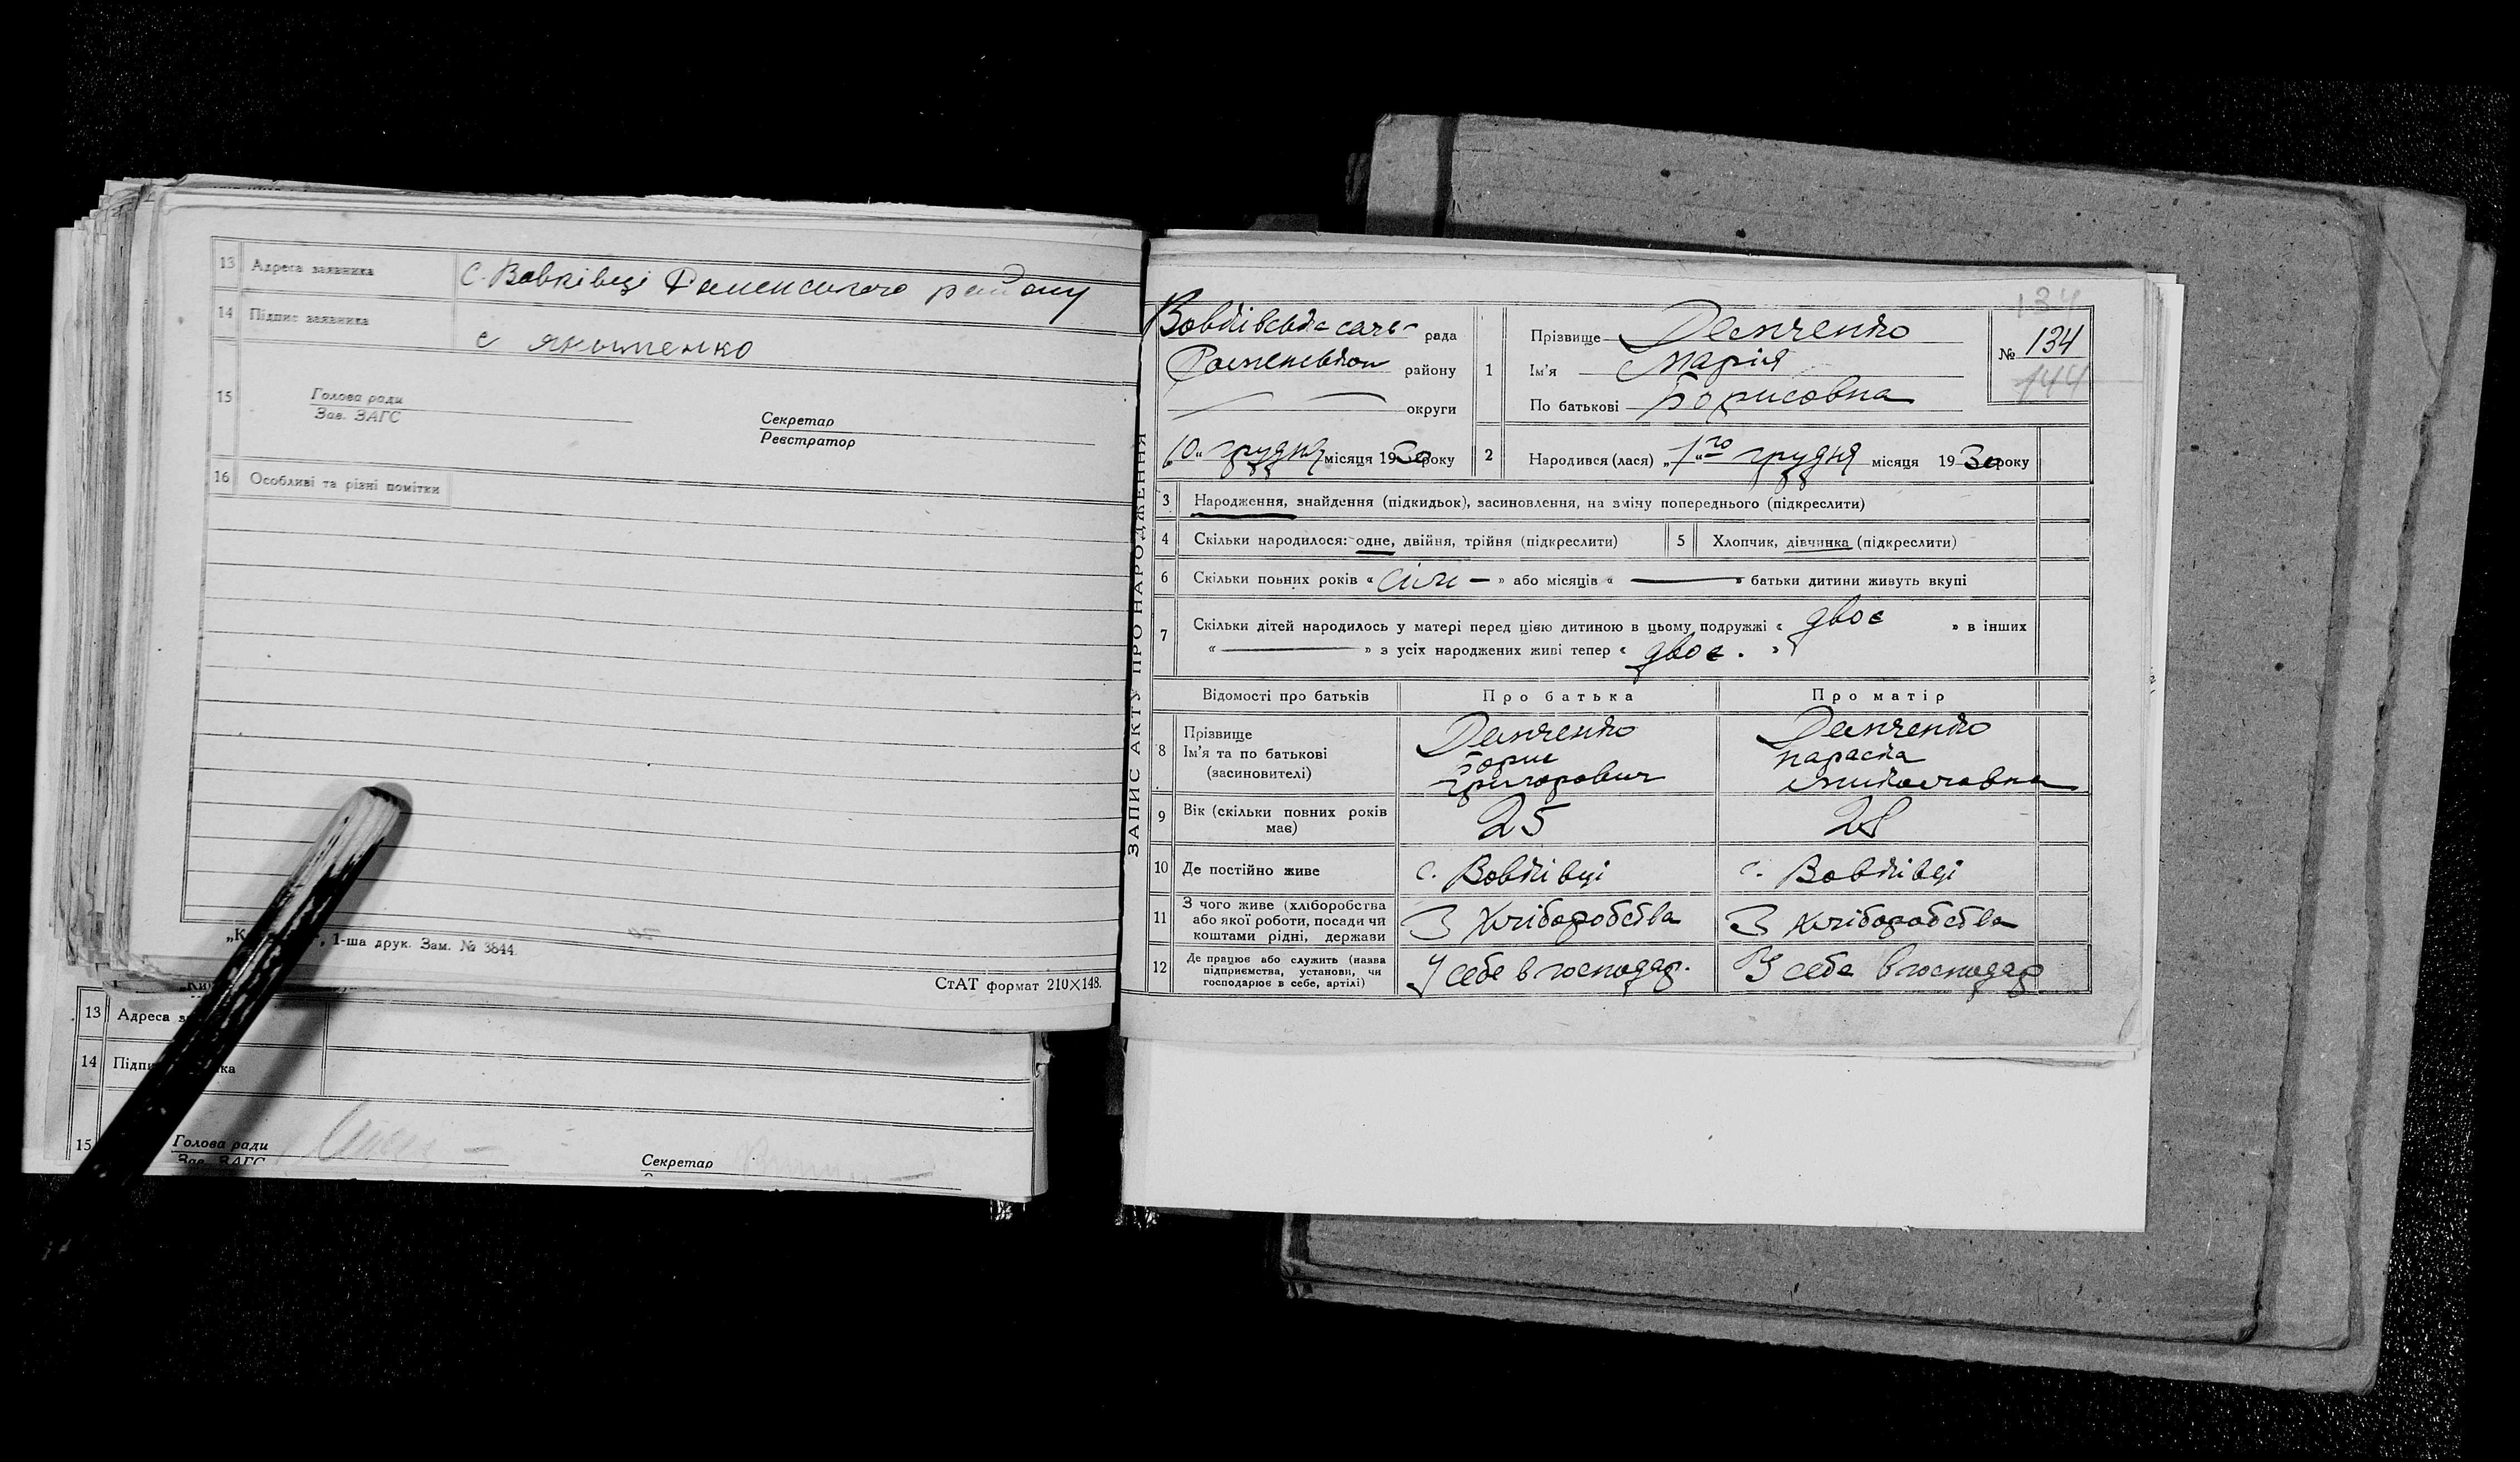 13 Адреса заявника С. Вовківці Роменського району
14 Підпис заявника
є якименко
15 Голова ради
Зав. ЗАГС
Секретар
Реєстратор
16 Особливі та різні помітки
1-ша друк. Зам. № 3844.
СтАТ формат 210×148.
13 Адреса
14
15 Голова ради
Зав. ЗАГС
Секретар
ЗАПИС АКТУ ПРО НАРОДЖЕННЯ
134
Вовківська сель- рада
Роменський району
округи
„10“ грудня місяця 1930 року
1 Прізвище Демченко
Ім'я Марія
По батькові Борисовна
№ 134
144
2 Народився (лася) „1“го грудня місяця 1930 року
3 Народження, знайдення (підкидьок), засиновлення, на зміну попереднього (підкреслити)
4 Скільки народилося: одне, двійня, трійня (підкреслити)
5 Хлопчик, дівчинка (підкреслити)
6 Скільки повних років « сім – » або місяців « — » батьки дитини живуть вкупі
7 Скільки дітей народилось у матері перед цією дитиною в цьому подружжі « двоє » в інших
« — » з усіх народжених живі тепер « двоє. »
Відомості про батьків Про батька Про матір
8 Прізвище
Ім'я та по батькові
(засиновителі)
Демченко
Борис
Григорович
Демченко
Параска
Миколаовна
9 Вік (скільки повних років має) 25 28
10 Де постійно живе с. Вовківці с. Вовківці
11 З чого живе (хліборобства
або якої роботи, посади чи
коштами рідні, держави
З хліборобства З хліборобства
12 Де працює або служить (назва
підприємства, установи, чи
господарює в себе, артілі)
У себе в господар. У себе в господар